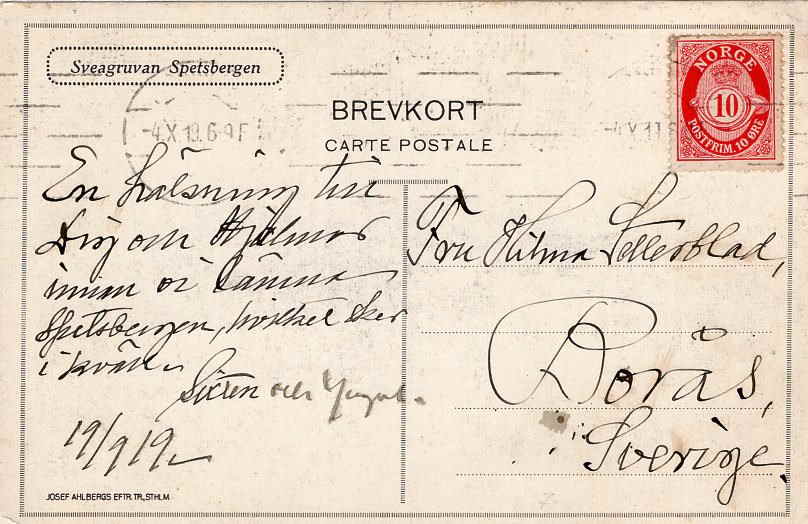 Sveagruvan Spetsbergen
BREVKORT
CARTE POSTALE
NORGE
10
POSTFRIM. 10 ØRE
4 X 19.6
En hälsning till
Dig och Hjalmar
innan vi lämna
Spetsbergen, hvilket sker
i kväll
Sixten och
19/9 19
Fru Hilma
Borås,
Sverige.
JOSEF AHLBERGS EFTR. TR., STHLM